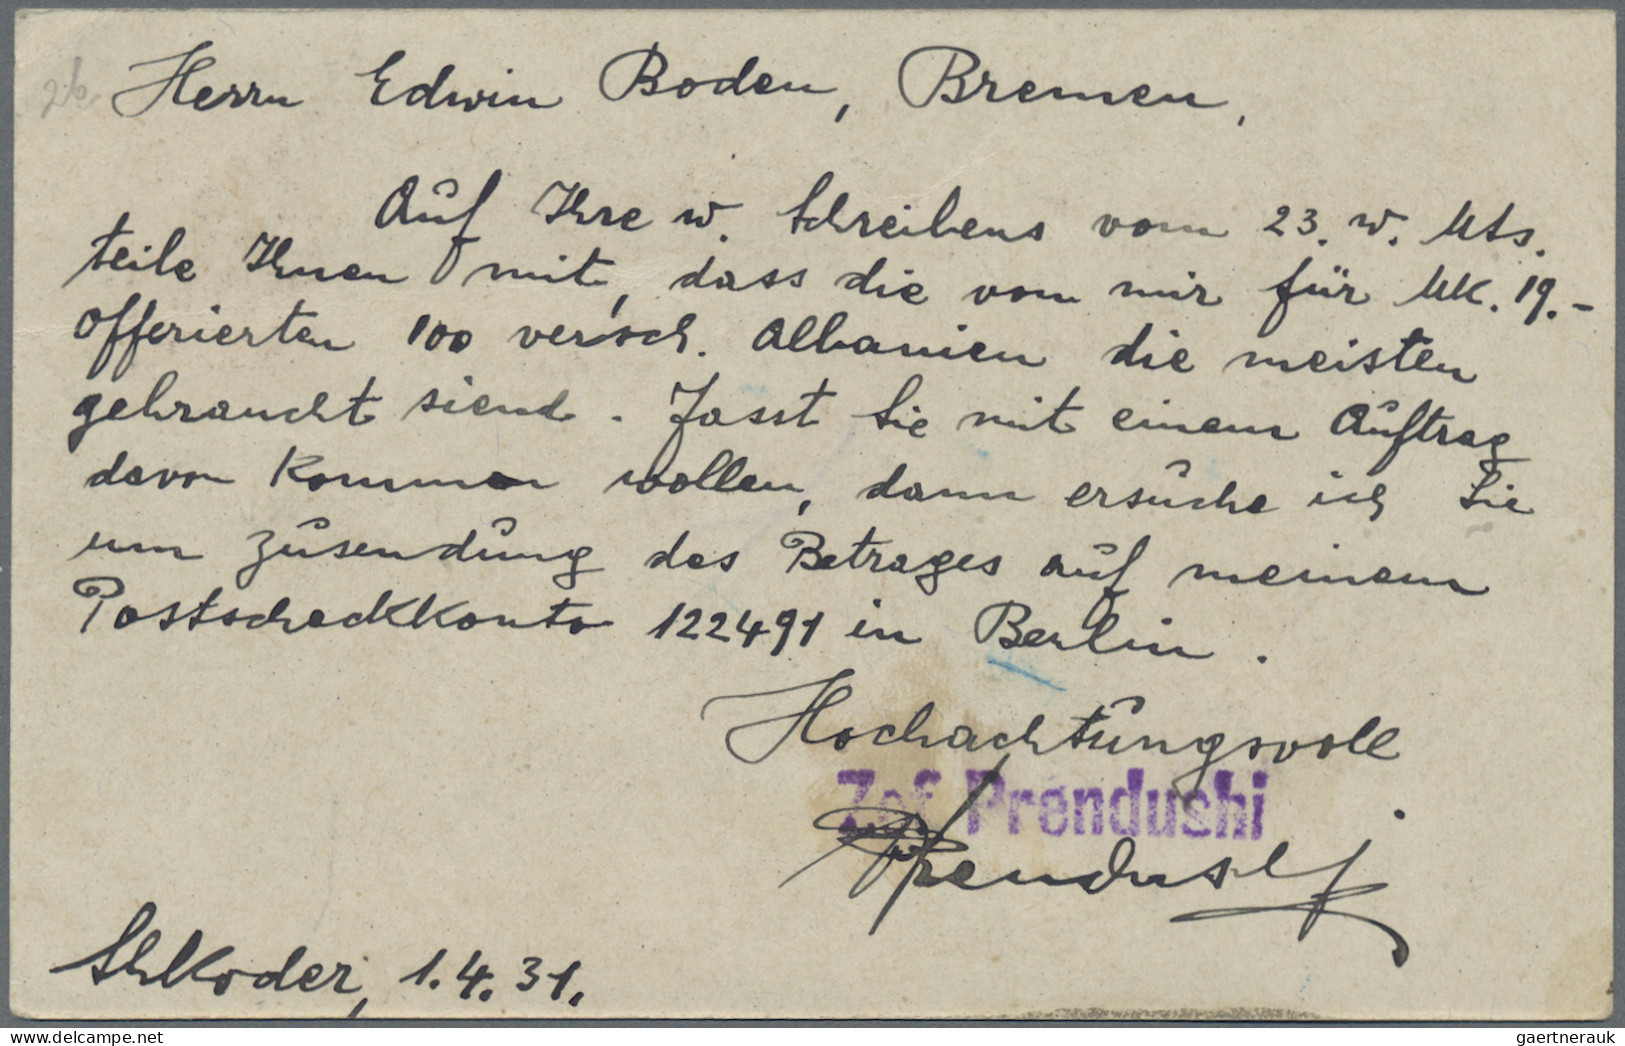 Herrn Edwin Boden, Bremen,
Auf Ihre w. Schreibens vom 23. w. Mts.
teile Ihnen mit, dass die vom mir für Mk. 19.-
offerierten 100 versch. Albanien die meisten
gebraucht siend. Fasst Sie mit einem Auftrag
davon kommen wollen, dann ersuche ich Sie
um Zusendung des Betrages auf meinem
Postscheckkonto 122491 in Berlin.
Hochachtungsvoll
Zef Prendushi
Prendushi
Shkoder, 1.4.31.
gaertnerauk